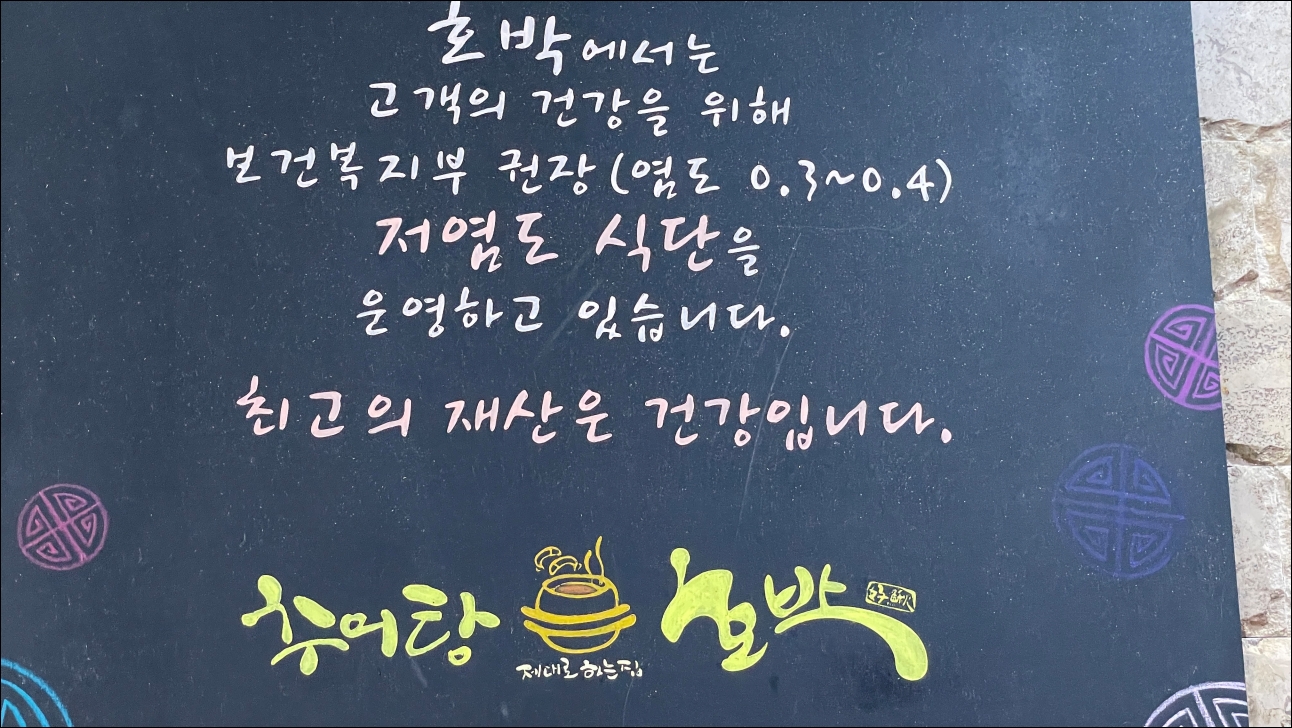 호박에서는
고객의 건강을 위해
보건복지부 권장(염도 0.3~0.4)
저염도 식단을
운영하고 있습니다.
최고의 재산은 건강입니다.
추어탕 호박
제대로 하는 집